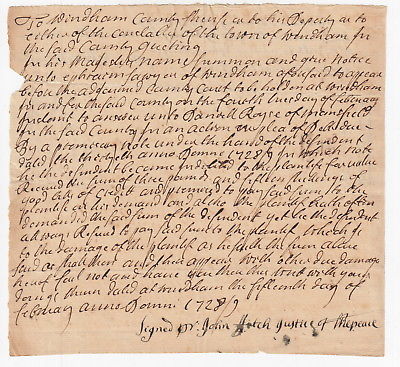 To Windham County Sheriffe or to his Deputy or to
either of the Constables of the town of windham in
the said County Greeting
In his Majesties name summon and give Notice
unto Ephraim Sawyer of Windham aforesaid to appear
before the adjourned County Court to be holden at windham
in and for the said County on the fourth tuesday of february
to answer unto Daniell Royce of mansfield
in the said County in an action plea of Debt due
By a promisery note under the hand of the defendent
dated the anno Domini 1728/9 In which note
the defendent became indebted to the plantife for value
Received the sum of three pounds and
good bills of credit and to pay said sum to the
plantife on his demand and altho the plantife hath often
demanded the said sum of the defendent yet he the defendent
always Refused to pay said sum to the plantife which is
to the damage of the plantife as he saith the sum above
said as shall then and there appear with other due damage
hereof fail not and have you then this writ with your
doings therein dated at windham the fifteenth day of
february anno Domini 1728/9
Signed pr. John Justice of the peace